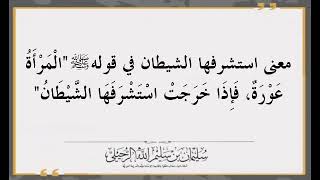 معنى استشرفها الشيطان في قوله ﷺ "الْمَرْأَةُ
عَوْرَةٌ، فَإِذَا خَرَجَتْ اسْتَشْرَفَهَا الشَّيْطَانُ"
سُليمَان بن سَليم اللّٰه الرُّحَيلي